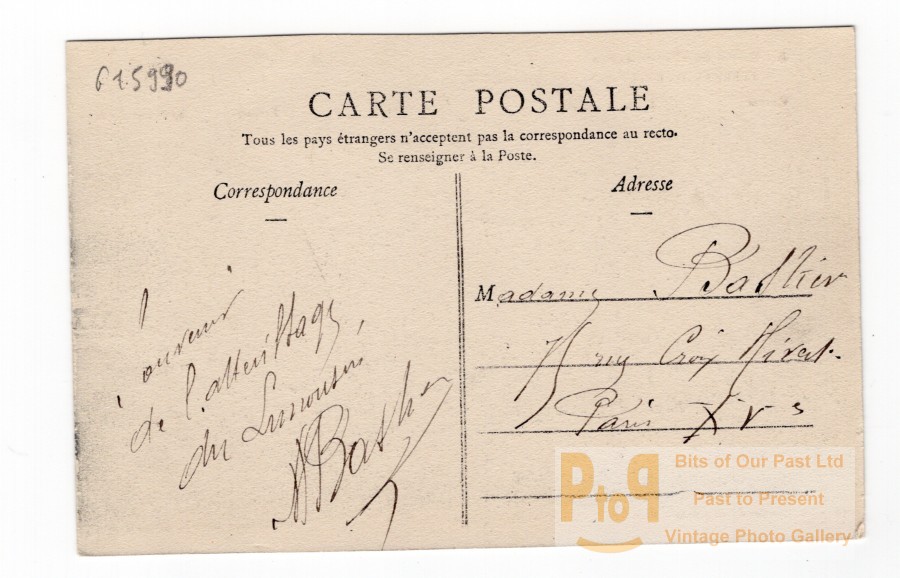 615990
CARTE POSTALE
Tous les pays étrangers n'acceptent pas la correspondance au recto.
Se renseigner à la Poste.
Correspondance
Souvenir
de l'atterrissage
du Limousin
Adresse
Madame
rue Croix Nivert
Paris XVe
PtoP
Bits of Our Past Ltd
Past to Present
Vintage Photo Gallery